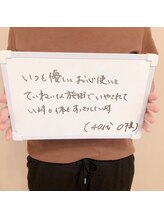 いつも優しいお心使いと
ていねいな施術でいやされて
います。体もすっきりしています
(40代 O様)